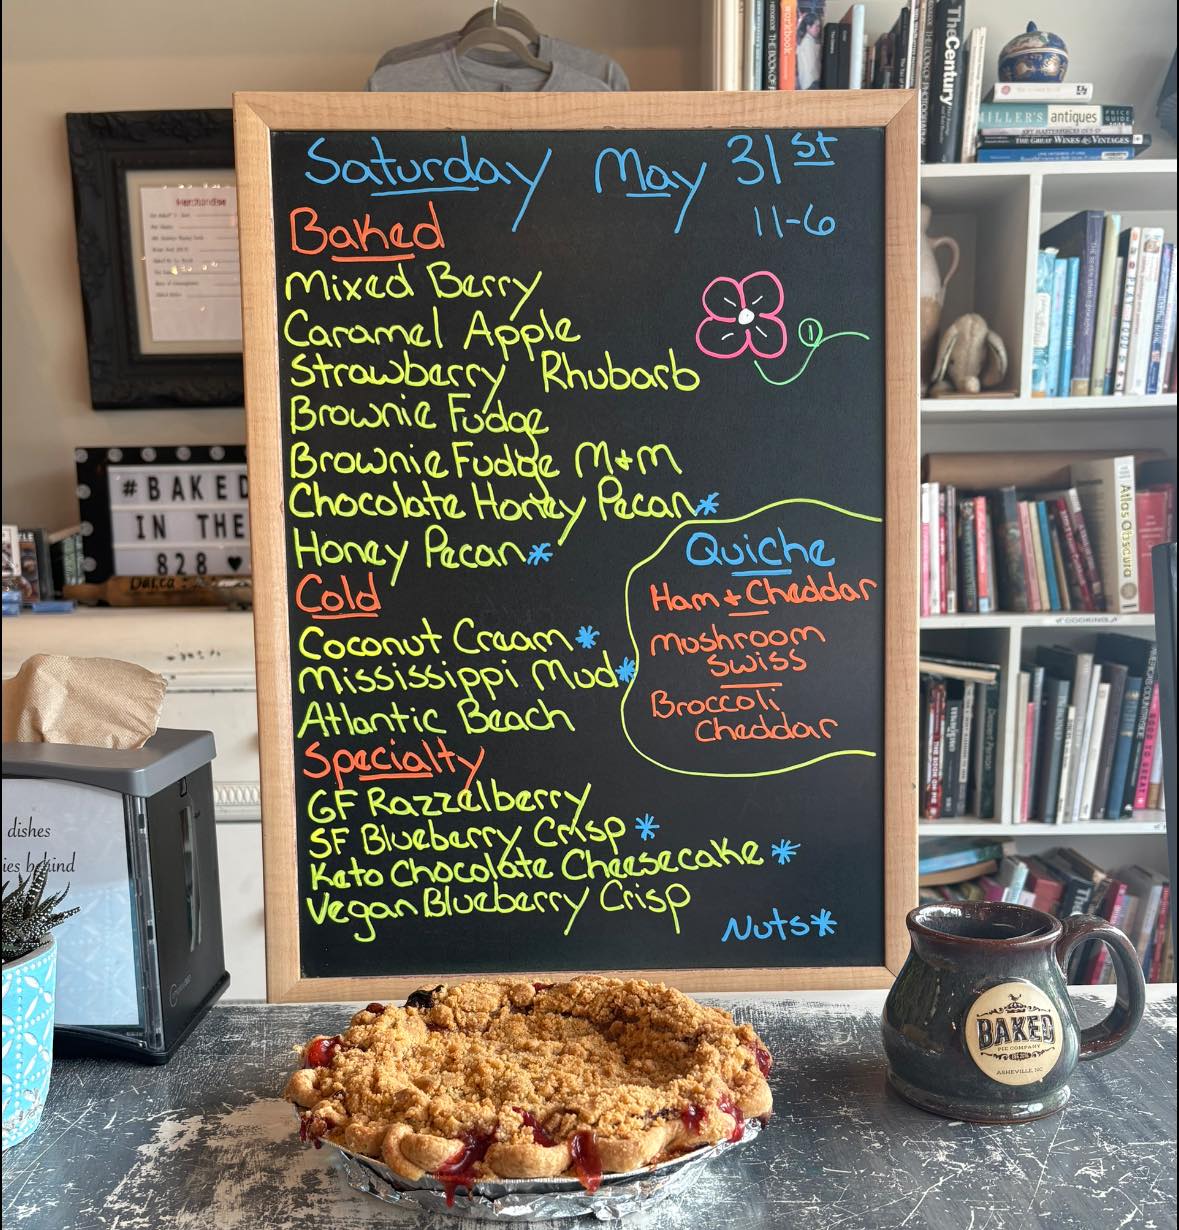 Saturday May 31st
11-6
Baked
Mixed Berry
Caramel Apple
Strawberry Rhubarb
Brownie Fudge
Brownie Fudge M+M
Chocolate Honey Pecan*
Honey Pecan*
Cold
Coconut Cream*
Mississippi Mud*
Atlantic Beach
Specialty
GF Razzelberry
SF Blueberry Crisp*
Keto Chocolate Cheesecake*
Vegan Blueberry Crisp
Quiche
Ham + Cheddar
Mushroom
Swiss
Broccoli
Cheddar
Nuts*
Merchandise
#BAKED
IN THE
828 ♥
dishes
ies behind
BAKED
PIE COMPANY
ASHEVILLE, NC
workbook
The Century
MILLER'S antiques PRICE
THE GREAT WINES & VINTAGES
Atlas Obscura
COOKING